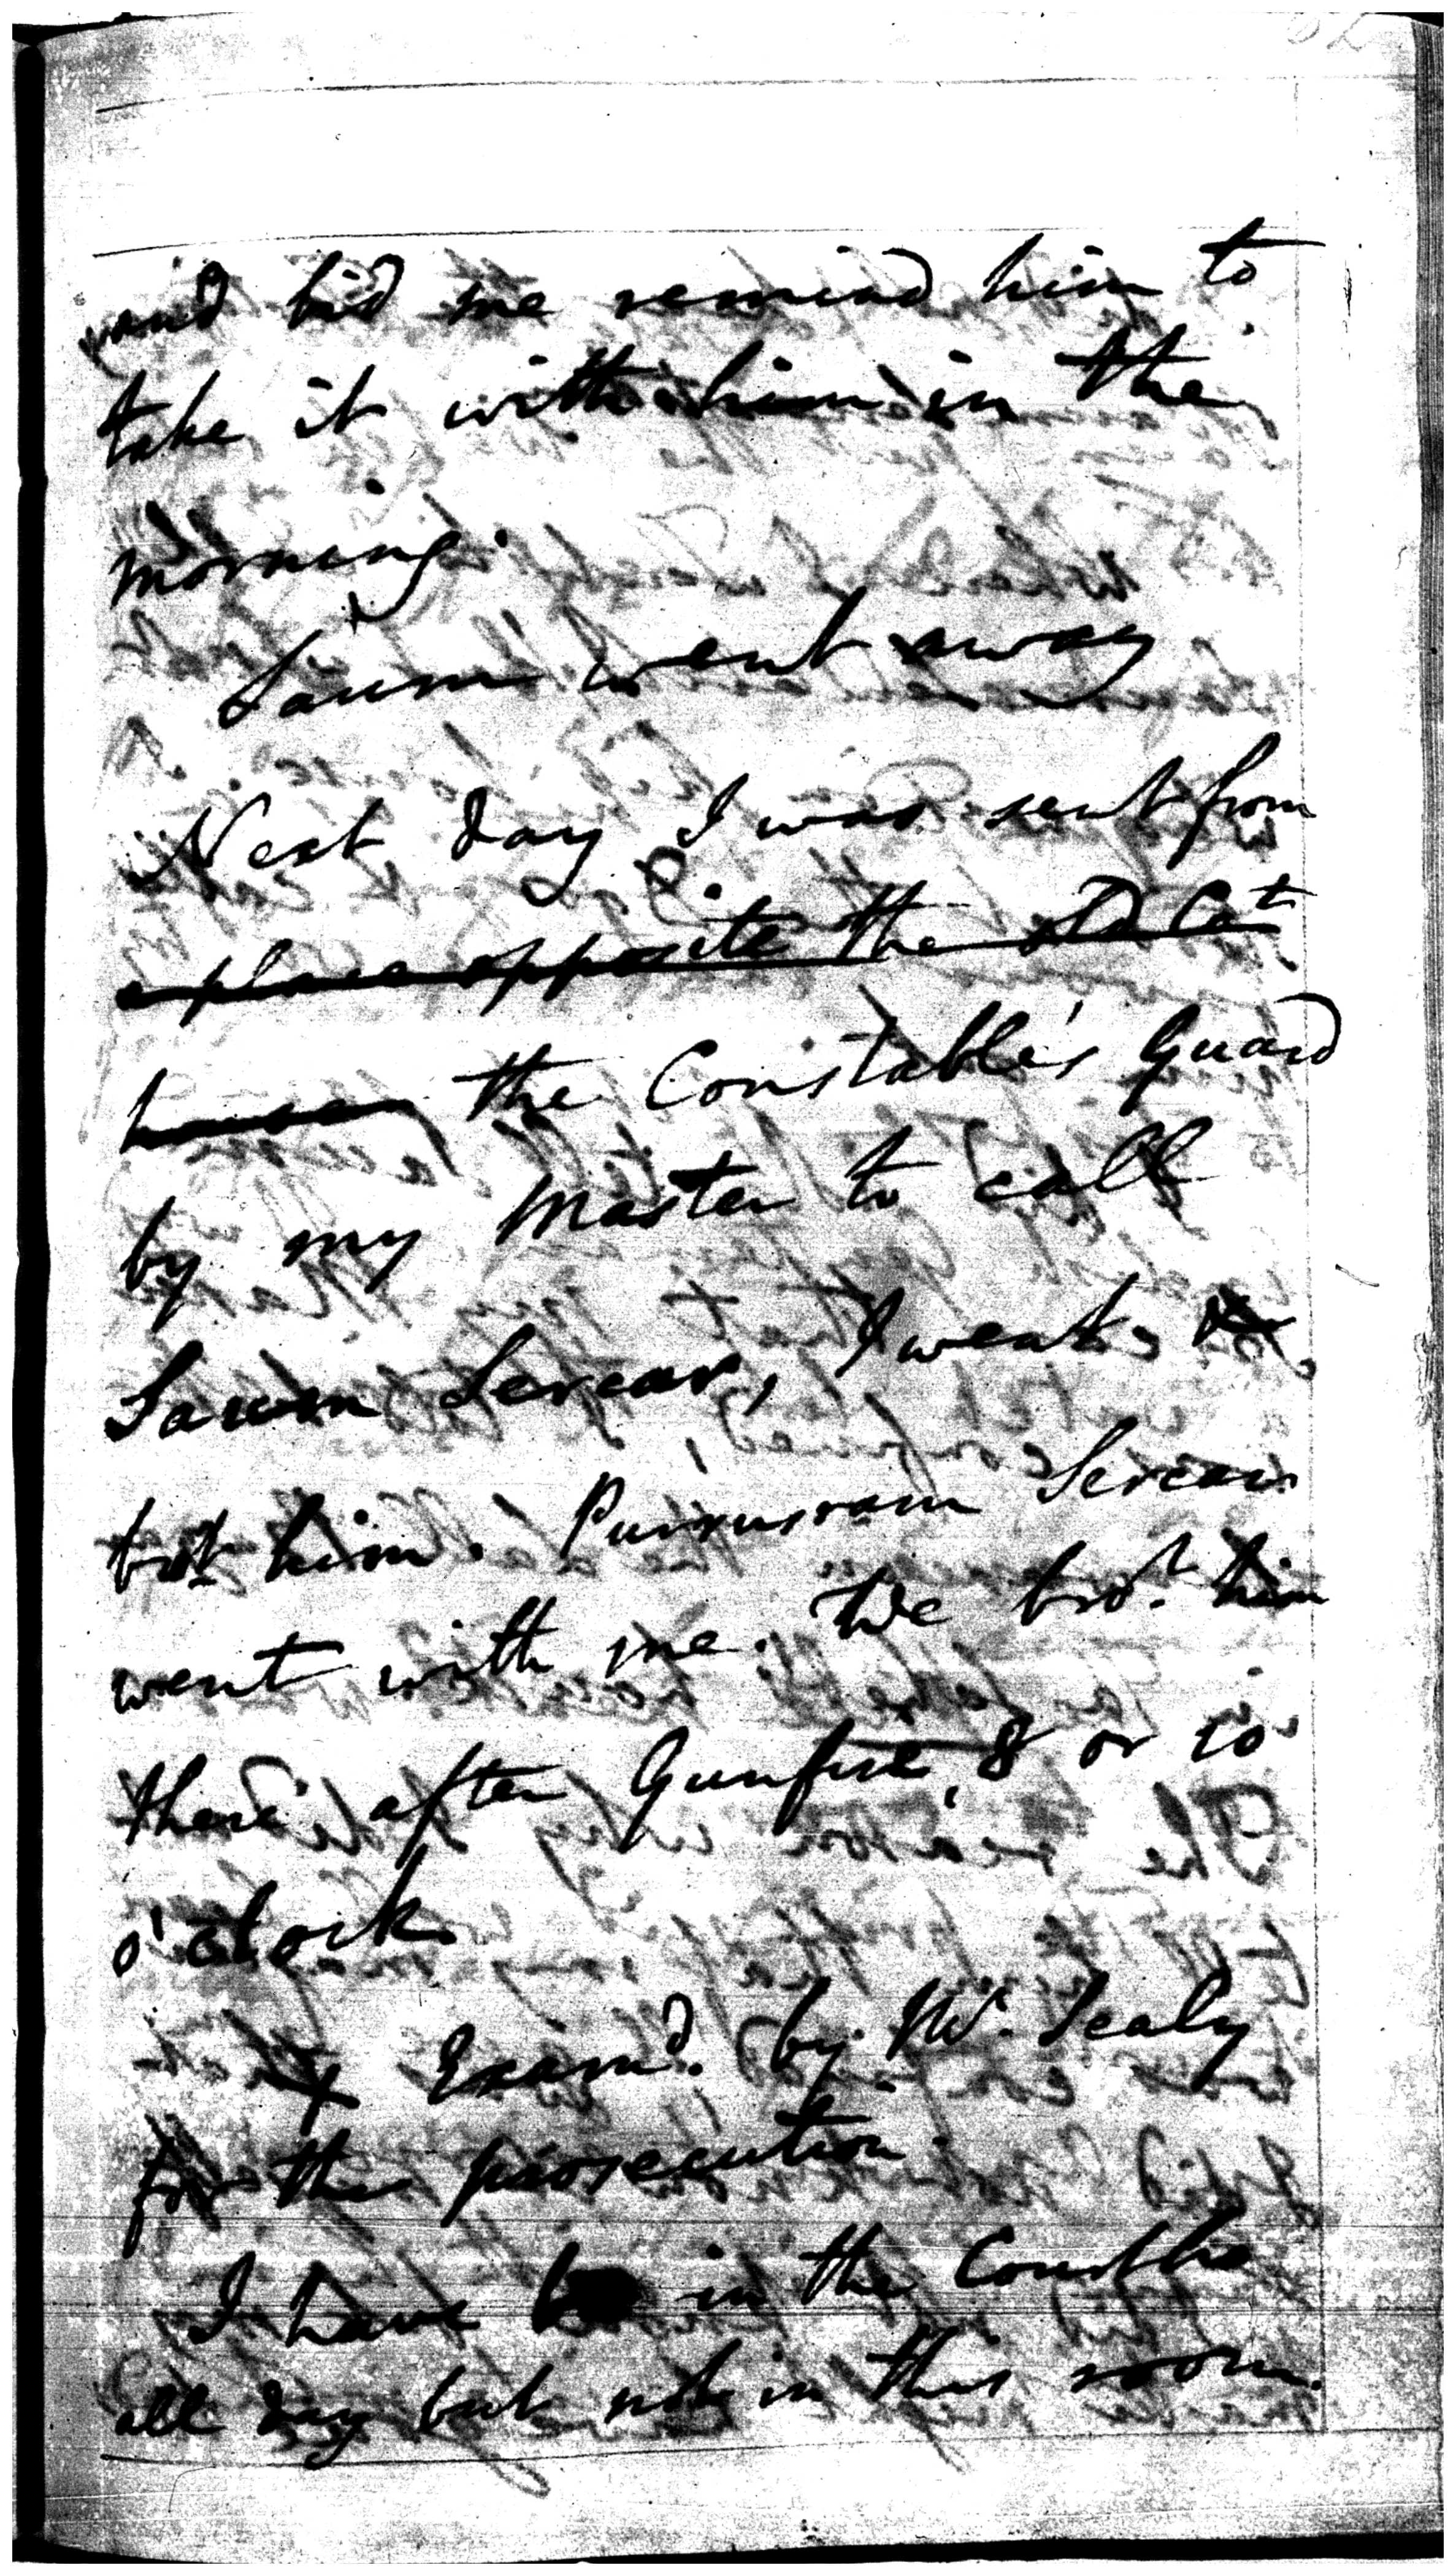 and bid me remind him to
take it with him in the
morning.
Saum went away
Next day I was sent from
a place opposite the old Ct
house the Constable's Guard
by my Master to call
Saum Sercar, I went &
brot him. Pursusram Sercar
went with me. We brot. him
there after Gunfire, 8 or 10
o'clock
X Examd. by Mr. Sealy
for the prosecution.
I have in the Courtho
all day but not in this room.